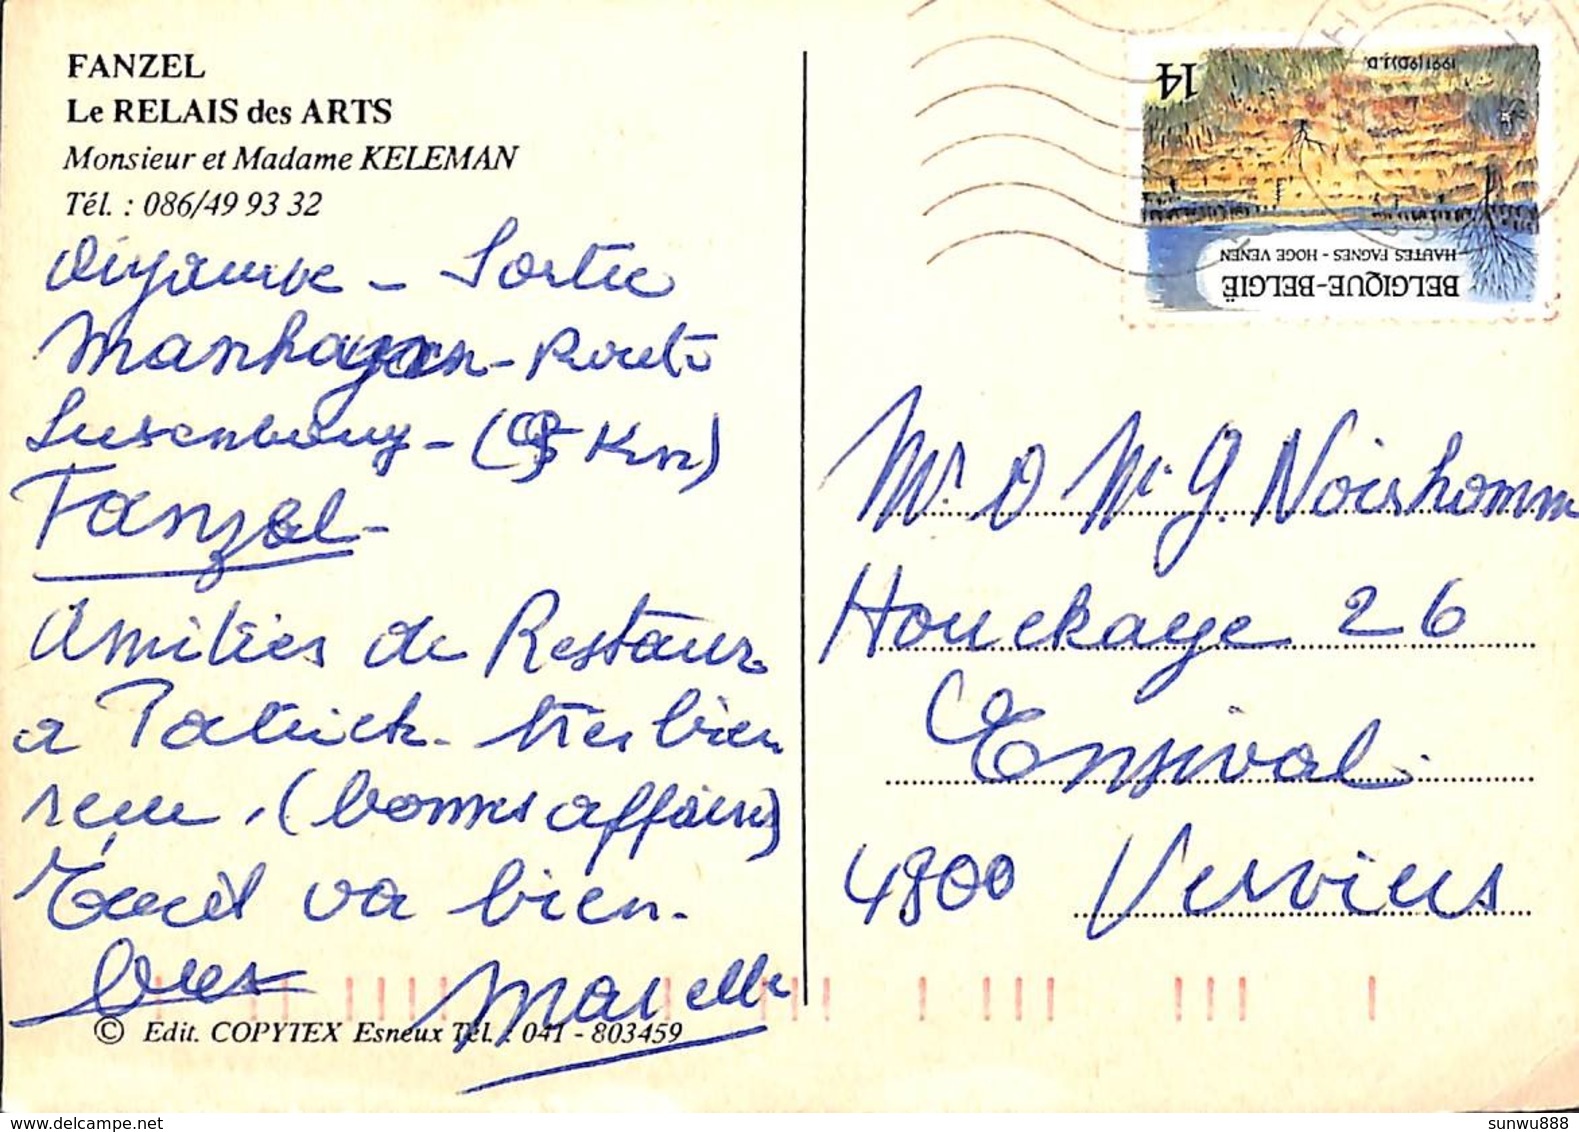 FANZEL
Le RELAIS des ARTS
Monsieur et Madame KELEMAN
Tél. : 086/49 93 32
Sortie
Manhay - Route
Luxembourg - (5 Km)
Fanzel -
Amitiés de Restaur
a Patrick - très bien
reçu. (bonnes affaires)
Tout va bien.
Marcelle
© Edit. COPYTEX Esneux Tél. : 041 - 803459
14
1991(9D)J.D.
HAUTES FAGNES - HOGE VENEN
BELGIQUE-BELGIË
Mr. & Me. G. Noirhomm
Houckaye 26
Ensival.
4800 Verviers
delcampe.net
sunwu888